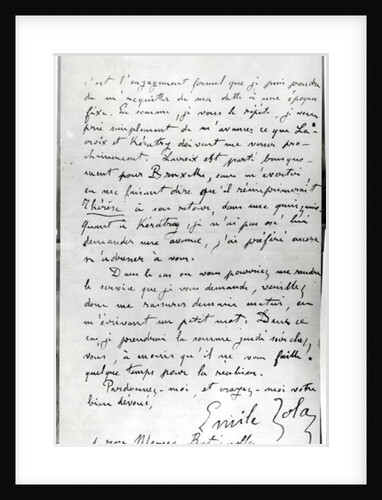 c'est l'engagement formel que je puis prendre
de m'acquitter de ma dette à une époque
fixe. En somme, je vous le répète, je vous
prie simplement de m'avancer ce que La-
croix et Kératry doivent me verser pro-
chainement. Lacroix est parti brusque-
ment pour Bruxelles, sans m'avertir
en me faisant dire qu'il réimprimerait
Thérèse à son retour, dans une quinzaine.
Quant à Kératry, je n'ai pas osé lui
demander une avance, j'ai préféré encore
m'adresser à vous.
Dans le cas où vous pourriez me rendre
le service que je vous demande, veuillez
donc me rassurer demain matin, en
m'écrivant un petit mot. Dans ce
cas, je prendrai la somme jeudi soir chez
vous, à moins qu'il ne vous faille
quelque temps pour la réaliser.
Pardonnez-moi, et croyez-moi votre
bien dévoué,
Emile Zola
1 rue Moncey Batignolles